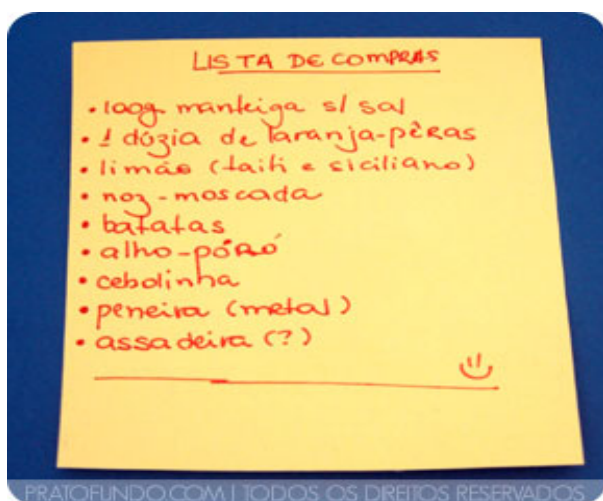 LISTA DE COMPRAS
• 100g manteiga s/ sal
• 1 dúzia de laranja-pêras
• limão (taiti e siciliano)
• noz-moscada
• batatas
• alho-póró
• cebolinha
• peneira (metal)
• assadeira (?)
PRATOFUNDO.COM | TODOS OS DIREITOS RESERVADOS